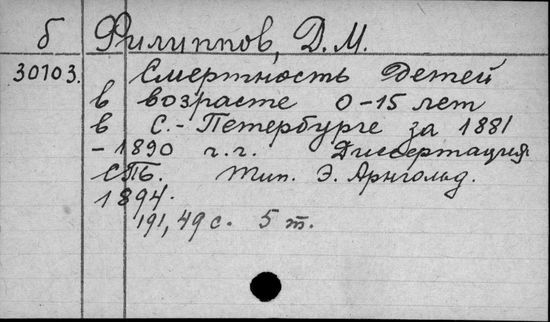 б Филиппов, Д.М.
30103. Смертность детей
в возрасте 0-15 лет
в С.-Петербурге за 1881
-1890 г.г. Диссертация
СПБ. Тип. Э. Арнгольд.
1894.
191, 49 с. 5 т.